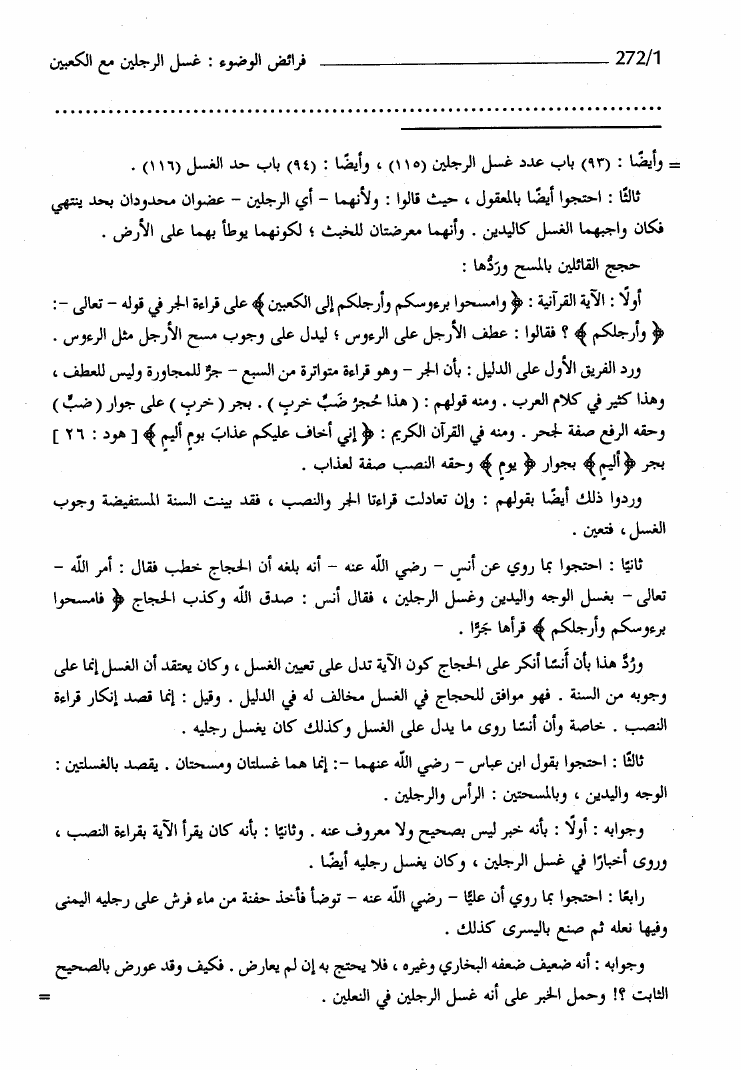 272/1 ـــــــــــــــــــــــــ فرائض الوضوء : غسل الرجلين مع الكعبين
= وأيضًا : (٩٣) باب عدد غسل الرجلين (١١٥) ، وأيضًا : (٩٤) باب حد الغسل (١١٦) .
ثالثًا : احتجوا أيضًا بالمعقول ، حيث قالوا : ولأنهما – أي الرجلين – عضوان محدودان بحد ينتهي
فكان واجبهما الغسل كاليدين . وأنهما معرضتان للخبث ؛ لكونهما يوطأ بهما على الأرض .
حجج القائلين بالمسح ورَدُّها :
أولًا : الآية القرآنية : ﴿ وامسحوا برءوسكم وأرجلكم إلى الكعبين ﴾ على قراءة الجر في قوله – تعالى –:
﴿ وأرجلكم ﴾ ؟ فقالوا : عطف الأرجل على الرءوس ؛ ليدل على وجوب مسح الأرجل مثل الرءوس .
ورد الفريق الأول على الدليل : بأن الجر – وهو قراءة متواترة من السبع – جرٌّ للمجاورة وليس للعطف ،
وهذا كثير في كلام العرب . ومنه قولهم : ( هذا حُجرُ ضَبٍّ خربٍ ) . بجر ( خربٍ ) على جوار ( ضبٍّ )
وحقه الرفع صفة لجحر . ومنه في القرآن الكريم : ﴿ إني أخاف عليكم عذابَ يومٍ أليمٍ ﴾ [ هود : ٢٦ ]
بجر ﴿ أليمٍ ﴾ بجوار ﴿ يومٍ ﴾ وحقه النصب صفة لعذاب .
وردوا ذلك أيضًا بقولهم : وإن تعادلت قراءتا الجر والنصب ، فقد بينت السنة المستفيضة وجوب
الغسل ، فتعين .
ثانيًا : احتجوا بما روي عن أنسٍ – رضي اللَّه عنه – أنه بلغه أن الحجاج خطب فقال : أمر اللَّه –
تعالى – بغسل الوجه واليدين وغسل الرجلين ، فقال أنس : صدق اللَّه وكذب الحجاج ﴿ فامسحوا
برءوسكم وأرجلكم ﴾ قرأها جَرًّا .
ورُدَّ هذا بأن أَنسًا أنكر على الحجاج كون الآية تدل على تعيين الغسل ، وكان يعتقد أن الغسل إنما على
وجوبه من السنة . فهو موافق للحجاج في الغسل مخالف له في الدليل . وقيل : إنما قصد إنكار قراءة
النصب . خاصة وأن أنسًا روى ما يدل على الغسل وكذلك كان يغسل رجليه .
ثالثًا : احتجوا بقول ابن عباس – رضي اللَّه عنهما –: إنما هما غسلتان ومسحتان . يقصد بالغسلتين :
الوجه واليدين ، وبالمسحتين : الرأس والرجلين .
وجوابه : أولًا : بأنه خبر ليس بصحيح ولا معروف عنه . وثانيًا : بأنه كان يقرأ الآية بقراءة النصب ،
وروى أخبارًا في غسل الرجلين ، وكان يغسل رجليه أيضًا .
رابعًا : احتجوا بما روي أن عليًّا – رضي اللَّه عنه – توضأ فأخذ حفنة من ماء فرش على رجليه اليمنى
وفيها نعله ثم صنع باليسرى كذلك .
وجوابه : أنه ضعيف ضعفه البخاري وغيره ، فلا يحتج به إن لم يعارض . فكيف وقد عورض بالصحيح
الثابت ؟! وحمل الخبر على أنه غسل الرجلين في النعلين . =